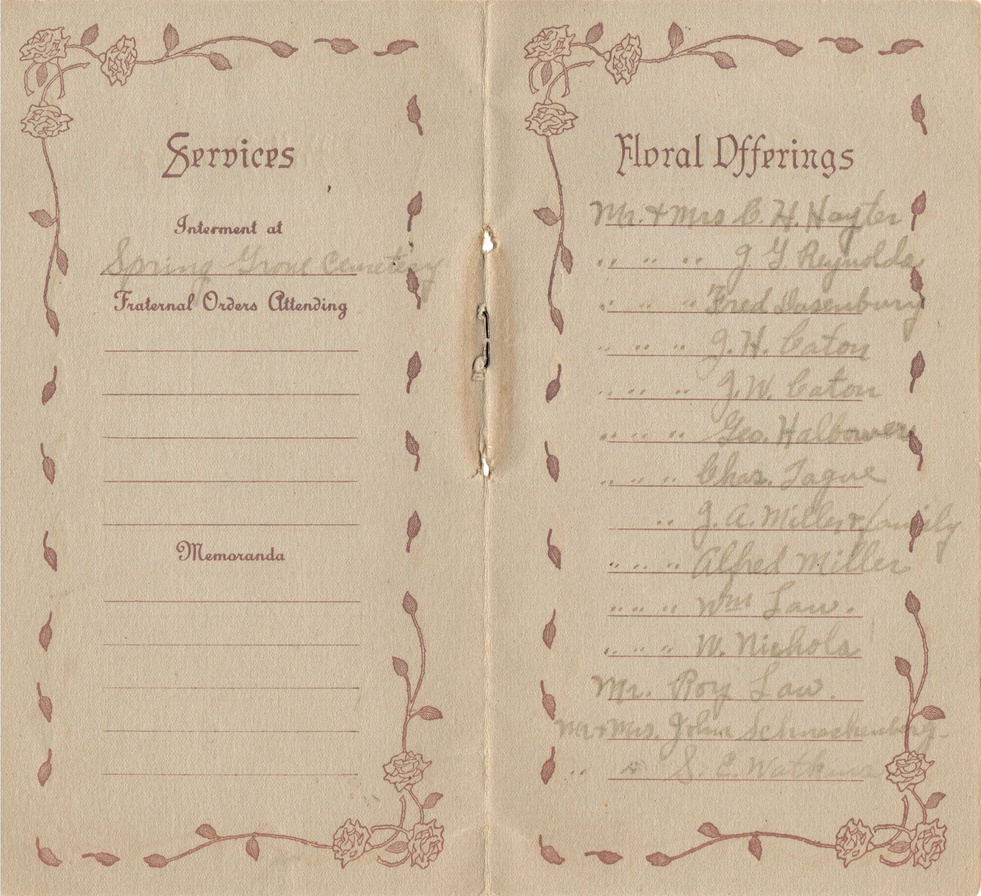 Services
Interment at
Spring Grove Cemetery
Fraternal Orders Attending
Memoranda
Floral Offerings
Mr. + Mrs C. H. Hayter
" " " J G. Reynolds
" " " Fred Dusenbury
" " " J. H. Eaton
" " " J. W. Eaton
" " " Geo. Halbower
" " " Chas. Tague
" " J. A. Miller & family
" " " Alfred Miller
" " " Wm Law.
" " " W. Nichols
Mr. Roy Law.
Mr + Mrs. John Schnackenberg
" " S. C. Watkins